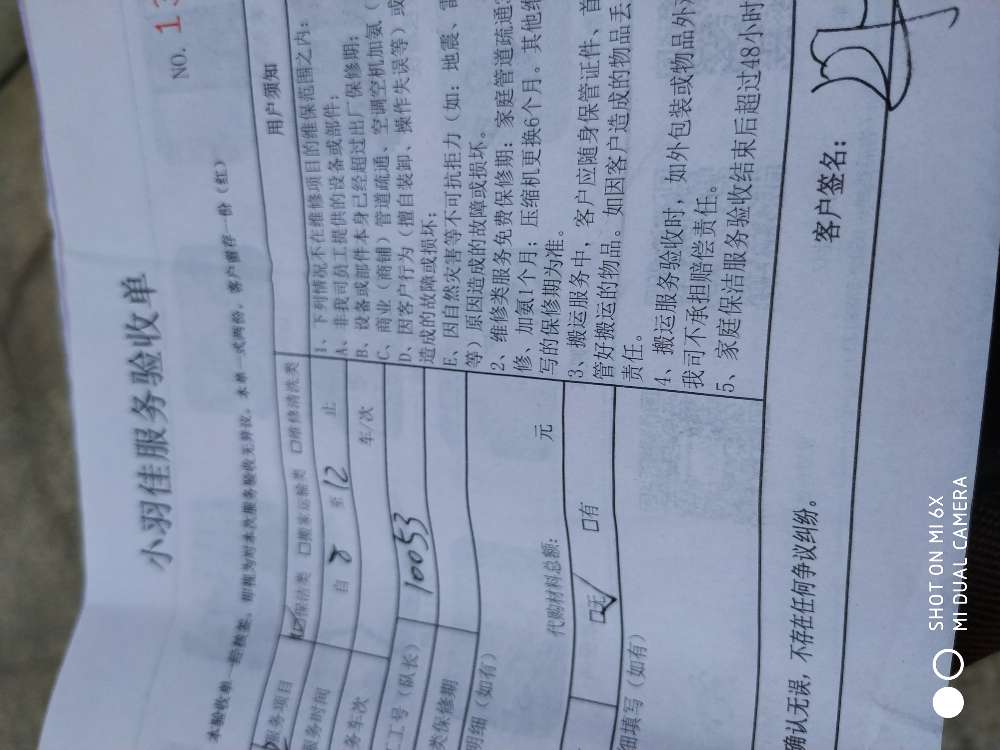 小羽佳服务验收单
NO. 13
本验收单一经核签，即视为对本次服务验收无异议。本单一式两份，客户留存一份（红）
服务项目 保洁类 □搬家运输类 □维修清洗类
服务时间 自 8 至 12 止
务车次 车/次
工号（队长） 10053
类保修期
明细（如有）
代购材料总额： 元
□无 □有
细填写（如有）
用户须知
1、下列情况不在维修项目的维保范围之内：
A、非我司员工提供的设备或部件；
B、设备或部件本身已经超过出厂保修期；
C、商业（商铺）管道疏通、空调空机加氨（
D、因客户行为（擅自装卸、操作失误等）或
造成的故障或损坏；
E、因自然灾害等不可抗拒力（如：地震、雷
等）原因造成的故障或损坏。
2、维修类服务免费保修期：家庭管道疏通
修、加氨1个月；压缩机更换6个月。其他维
写的保修期为准。
3、搬运服务中，客户应随身保管证件、首
管好搬运的物品。如因客户造成的物品丢
责任。
4、搬运服务验收时，如外包装或物品外
我司不承担赔偿责任。
5、家庭保洁服务验收结束后超过48小时
确认无误，不存在任何争议纠纷。
客户签名：
SHOT ON MI 6X
MI DUAL CAMERA